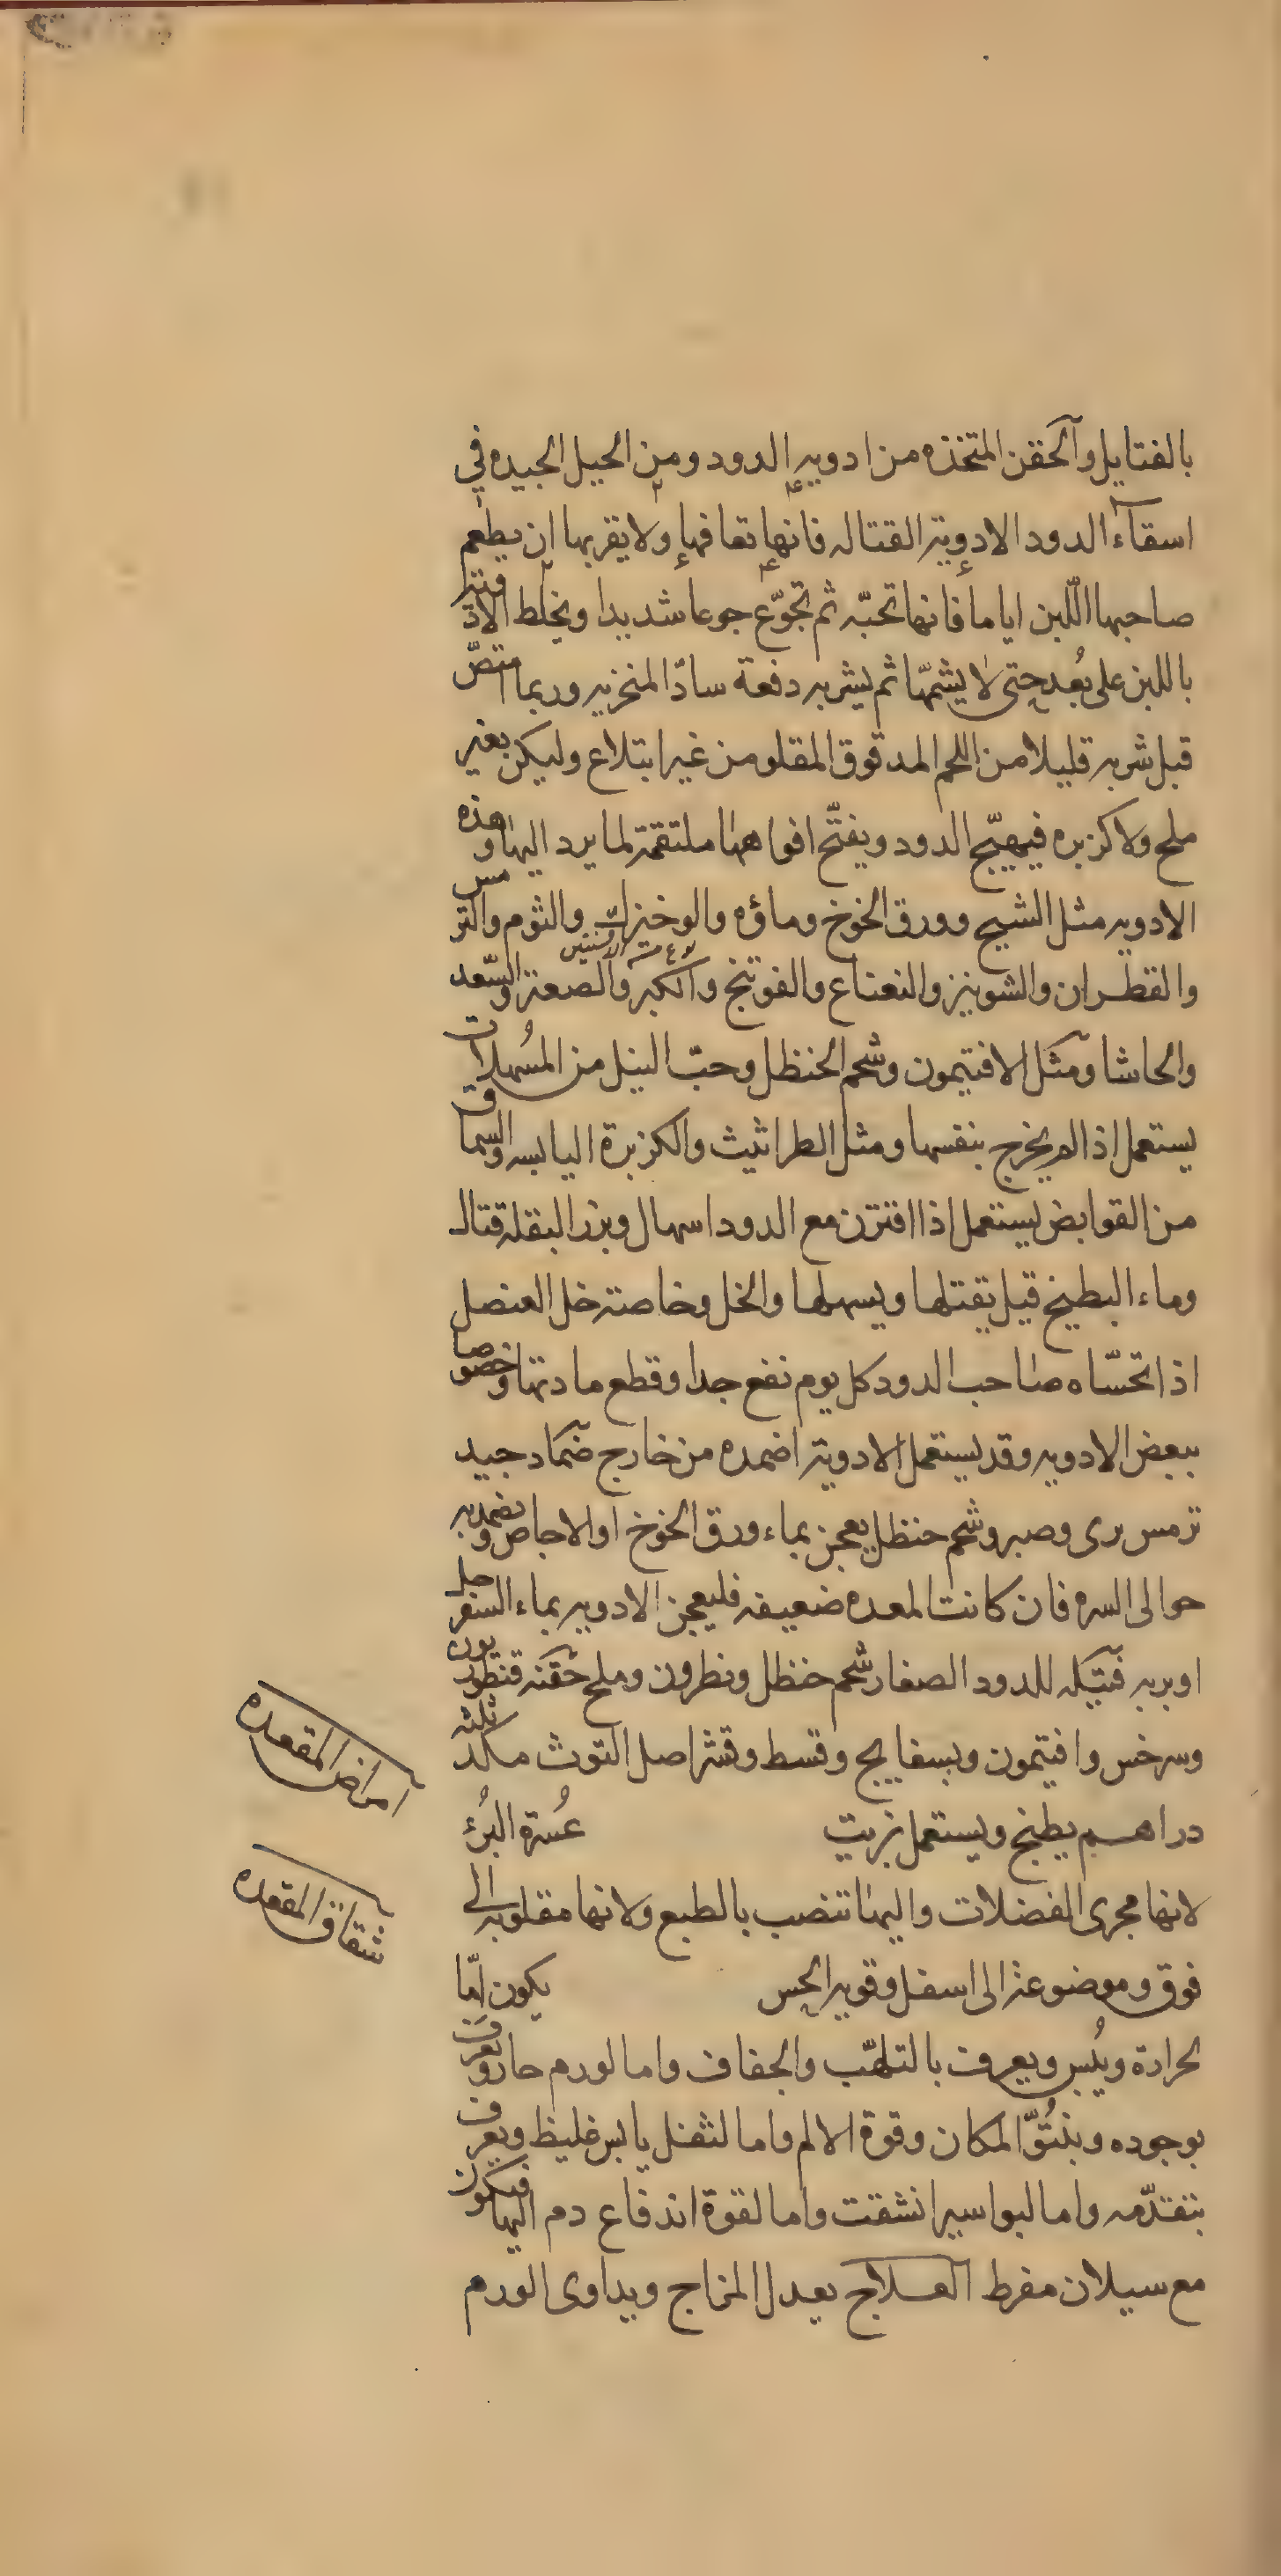 بالفتايل والحقن المتخذه من ادويه الدود ومن الحيل الجيده في
اسقاء الدود الادوية القتاله فانها تعافها ولا يقربها ان يطعم
صاحبها اللّبن اياما فانها تحبّه ثم تجوّع جوعا شديدا ويخلط الادوية
باللبن على بُعد حتى لا يشمّها ثم يشربه دفعة سادّ المنخريه وربما امتصّ
قبل شربه قليلا من اللحم المدقوق المقلو من غير ابتلاع وليكن بغير
ملح ولا كزبره فيهيّج الدود ويفتّح افواهها ملتقمة لما يرد اليها وهذه
الادويه مثل الشيح وورق الخوخ وماؤه والوخيزك والثوم والترمس
نوع من الافسنتين
والقطران والشونيز والنعناع والفوتنج والكبر والصعتر والسّعد
والحاشا ومثل الافتيمون وشحم الحنظل وحبّ النيل من المُسهلات
يستعمل اذا لم يخرج بنفسها ومثل الطراثيث والكزبرة اليابسه والسماق
من القوابض يستعمل اذا اقترن مع الدود اسهال وبزر البقله قتال
وماء البطيخ قيل يقتلها ويسهلها والخل وخاصة خل العنصل
اذا تحسّاه صاحب الدود كل يوم نفع جدا وقطع مادتها وخصوصا
ببعض الادويه وقد يستعمل الادوية اضمده من خارج ضماد جيد
ترمس برى وصبر وشحم حنظل يعجن بماء ورق الخوخ او الاجاص ويضمد به
حوالى السره فان كانت المعده ضعيفه فليعجن الادويه بماء السفرجل
او بربه فتيله للدود الصغار شحم حنظل ونطرون وملح حقنه قنطوريون
وسرخس وافتيمون وبسفايج وقسط وقشر اصل التوث مكد ثلثه
دراهم يطبخ ويستعمل بزيت عُسرة البُرء
امراض المقعده
لانها مجرى الفضلات واليها تنصب بالطبع ولانها مقلوبه الى
فوق وموضوعة الى اسفل وقويه الحس يكون امّا
شقاق المقعده
لحرارة ويُبس ويعرف بالتلهّب والجفاف واما لورم حار ويعرف
بوجوده وبنُتُوّ المكان وقوة الالم واما لثفل يابس غليظ ويعرف
بتقدّمه واما لبواسير انشقت واما لقوة اندفاع دم اليها فيكون
مع سيلان مفرط العلاج يعدل المزاج ويداوى الورم